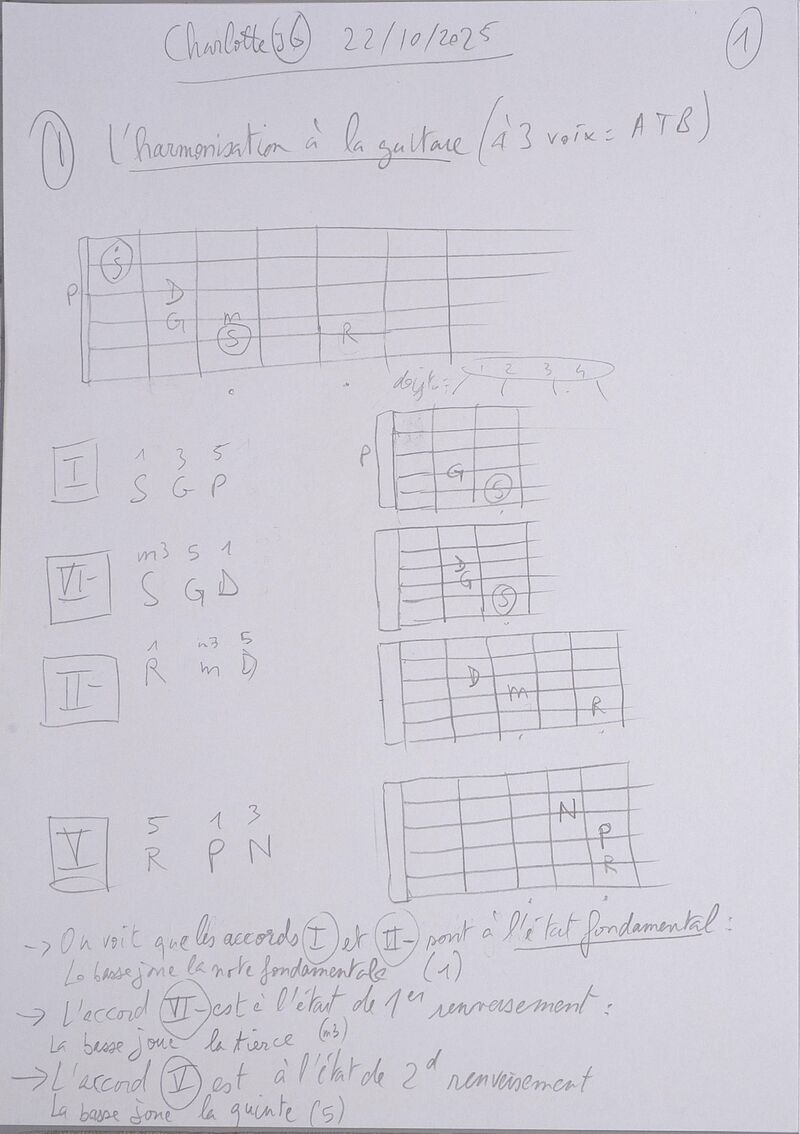 Charlotte (JG) 22/10/2025
1
1 L'harmonisation à la guitare (à 3 voix = ATB)
S
P D
G m
S R
doigts = 1 2 3 4
I
1 3 5
S G P
P G
S
VI-
m3 5 1
S G D
D
G
S
II-
1 m3 5
R m D
D
m
R
V
5 1 3
R P N
N
P
R
-> On voit que les accords I et II- sont à l'état fondamental :
La basse joue la note fondamentale (1)
-> L'accord VI- est à l'état de 1er renversement :
La basse joue la tierce (m3)
-> L'accord V est à l'état de 2d renversement
La basse joue la quinte (5)